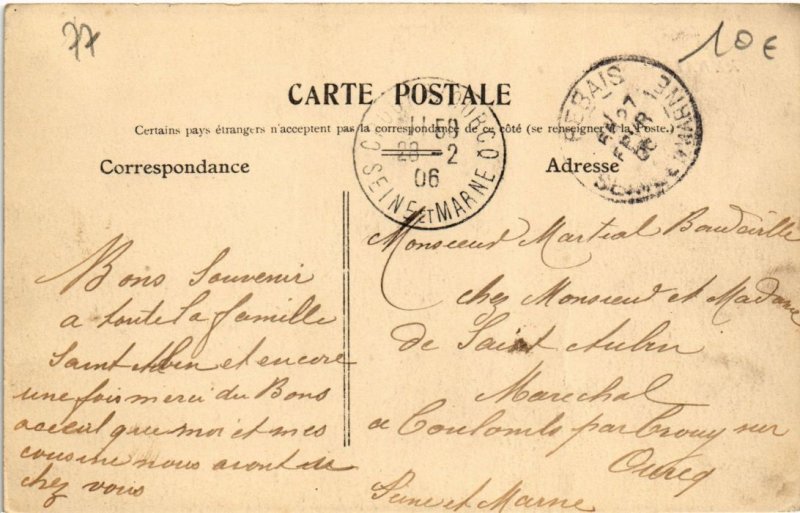 77
10€
CARTE POSTALE
Certains pays étrangers n'acceptent pas la correspondance de ce côté (se renseigner à la Poste.)
Correspondance
Adresse
OURCQ
11 50
28 - 2
06
SEINE ET MARNE
REBAIS
27
FEVR
06
SEINE MARNE
Bons Souvenir
a toute la famille
Saint Albin et encore
une fois merci du Bons
acceuil que moi et mes
cousine nous avont eu
chez vous
Monsieur Martial
chez Monsieur et Madame
de Saint Aubin
Marechal
a Coulombs par Crouy sur
Ourcq
Seine et Marne